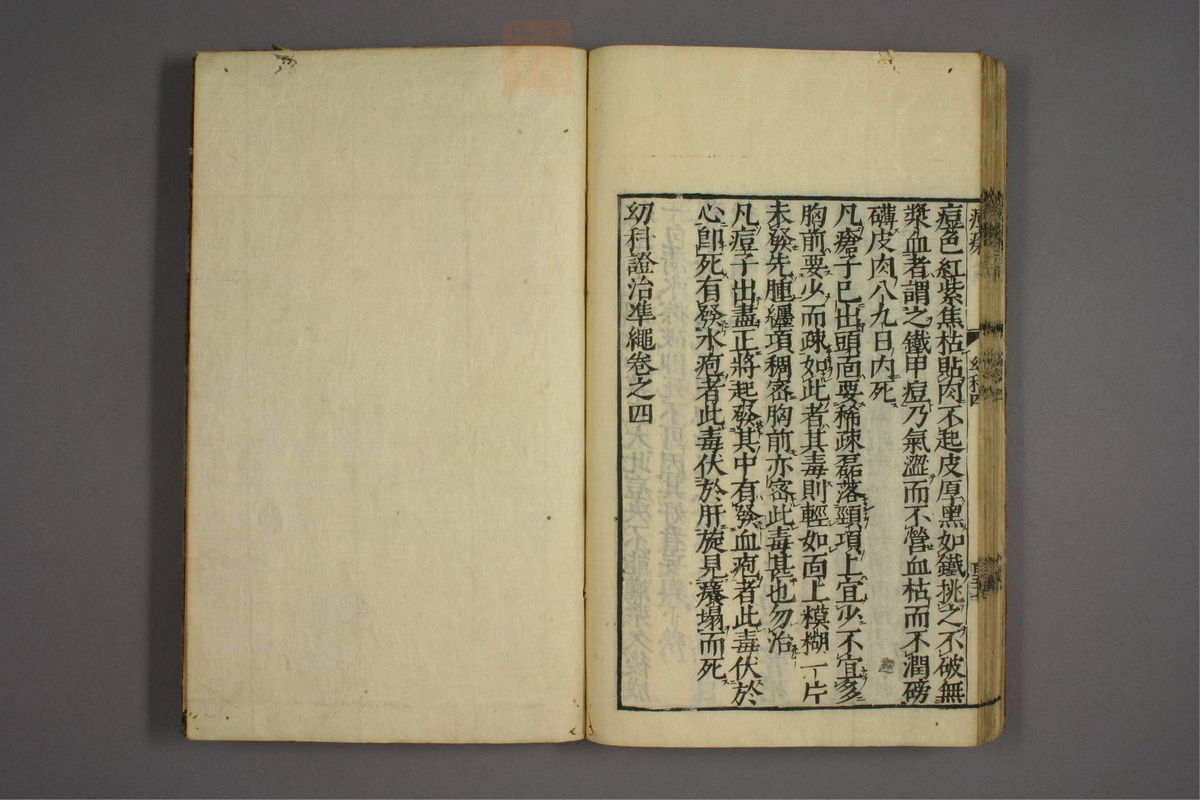 痘色紅紫焦枯貼肉不起皮厚黑如鐵挑之不破無
漿血者謂之鐵甲痘乃氣澀而不營血枯而不潤磅
礴皮肉八九日内死
凡瘡子已出頭面要稀疎磊落頸項上宜少不宜多
胸前要少而疎如此者其毒則輕如面上模糊一片
未發先腫纒項稠密胸前亦密此毒甚也勿治
凡痘子出盡正將起發其中有發血疱者此毒伏於
心卽死有發水疱者此毒伏於肝旋見癢塌而死
幼科證治準繩卷之四
幼科四